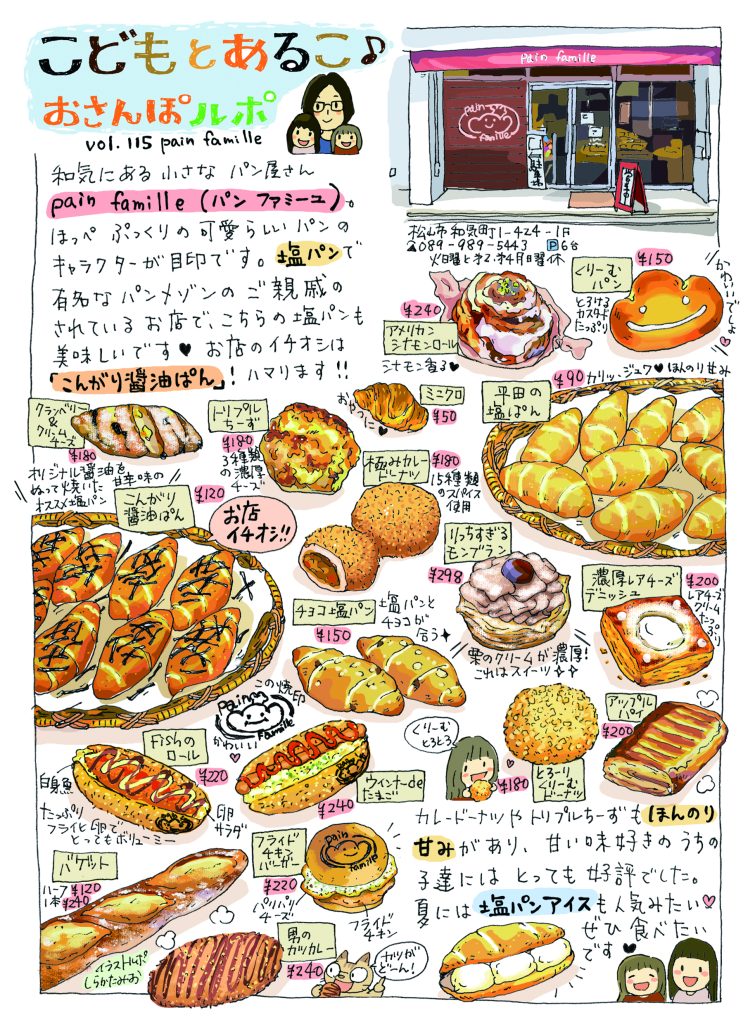 こどもとあるこ♪
おさんぽルポ
vol.115 pain famille
pain famille
pain
famille
和気にある小さなパン屋さん
pain famille (パン ファミーユ)。
ほっぺ ぷっくりの可愛らしいパンの
キャラクターが目印です。塩パンで
有名なパンメゾンのご親戚の
されているお店で、こちらの塩パンも
美味しいです♥お店のイチオシは
「こんがり醤油ぱん」! ハマります!!
松山市和気町1-424-1F
☎089-989-5443 P6台
火曜と第2・第4月曜休
¥240
アメリカン
シナモンロール
シナモン香る♥
くりーむ
パン
¥150
とろける
カスタード
たっぷり
かわいいでしょ♡
クランベリー
&
クリーム
チーズ
¥180
トリプル
ちーず
¥180
3種類
の濃厚
チーズ
ミニクロ
¥50
おやつに♥
¥90 カリッ・ジュワ♥ほんのり甘み
平田の
塩ぱん
オリジナル醤油を
ぬって焼いた 甘辛味の
オススメ塩パン
こんがり
醤油ぱん
¥120
お店
イチオシ!!
極みカレー
ドーナツ
¥180
15種類
のスパイス
使用
りっちすぎる
モンブラン
¥298
栗のクリームが濃厚!
これはスイーツ
濃厚レアチーズ
デニッシュ
¥200
レアチーズ
クリーム
たっぷり
チョコ塩パン
¥150
塩パンと
チョコが
合う
この焼印
pain
famille
かわいい
Fishの
ロール
¥220
白身魚
たっぷり
フライと卵で
とってもボリューミー
卵
サラダ
ウィンナーde
たまご
¥240
くりーむ
とろとろ
¥180
とろーり
くりーむ
ドーナツ
アップル
パイ
¥200
バゲット
ハーフ¥120
1本¥240
フライド
チキン
バーガー
¥220
パリパリ
チーズ
pain
famille
フライド
チキン
男の
カツカレー
¥240
カツが
どーん!
カレードーナツやトリプルちーずもほんのり
甘みがあり、甘い味好きのうちの
子達にはとっても好評でした。
夏には塩パンアイスも人気みたい♡
ぜひ食べたい
です♥
イラストルポ
しらかたみお